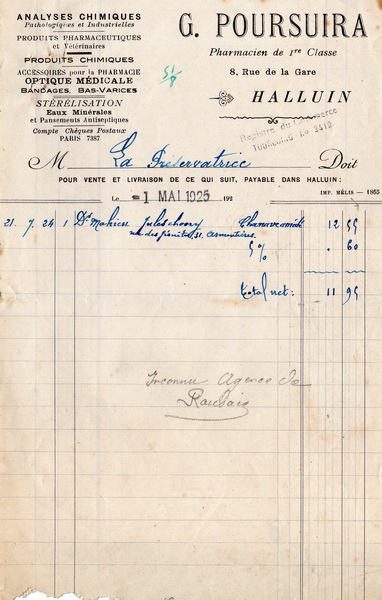 ANALYSES CHIMIQUES
Pathologiques et Industrielles
PRODUITS PHARMACEUTIQUES
et Vétérinaires
PRODUITS CHIMIQUES
ACCESSOIRES pour la PHARMACIE
OPTIQUE MÉDICALE
BANDAGES, BAS-VARICES
STÉRÉLISATION
Eaux Minérales
et Pansements Antiseptiques
Compte Chèques Postaux
PARIS 7387
G. POURSUIRA
Pharmacien de 1re Classe
8, Rue de la Gare
HALLUIN
Registre du Commerce
TOURCOING No 3419
M La Préservatrice Doit
POUR VENTE ET LIVRAISON DE CE QUI SUIT, PAYABLE DANS HALLUIN :
Le -1 MAI 1925 192
IMP. MÉLIS — 1865
21. 7. 24 1 Dr Mahieu 12 55
51. Armentières.
5% . 60
Total net: 11 95
Inconnu Agence de
Roubaix